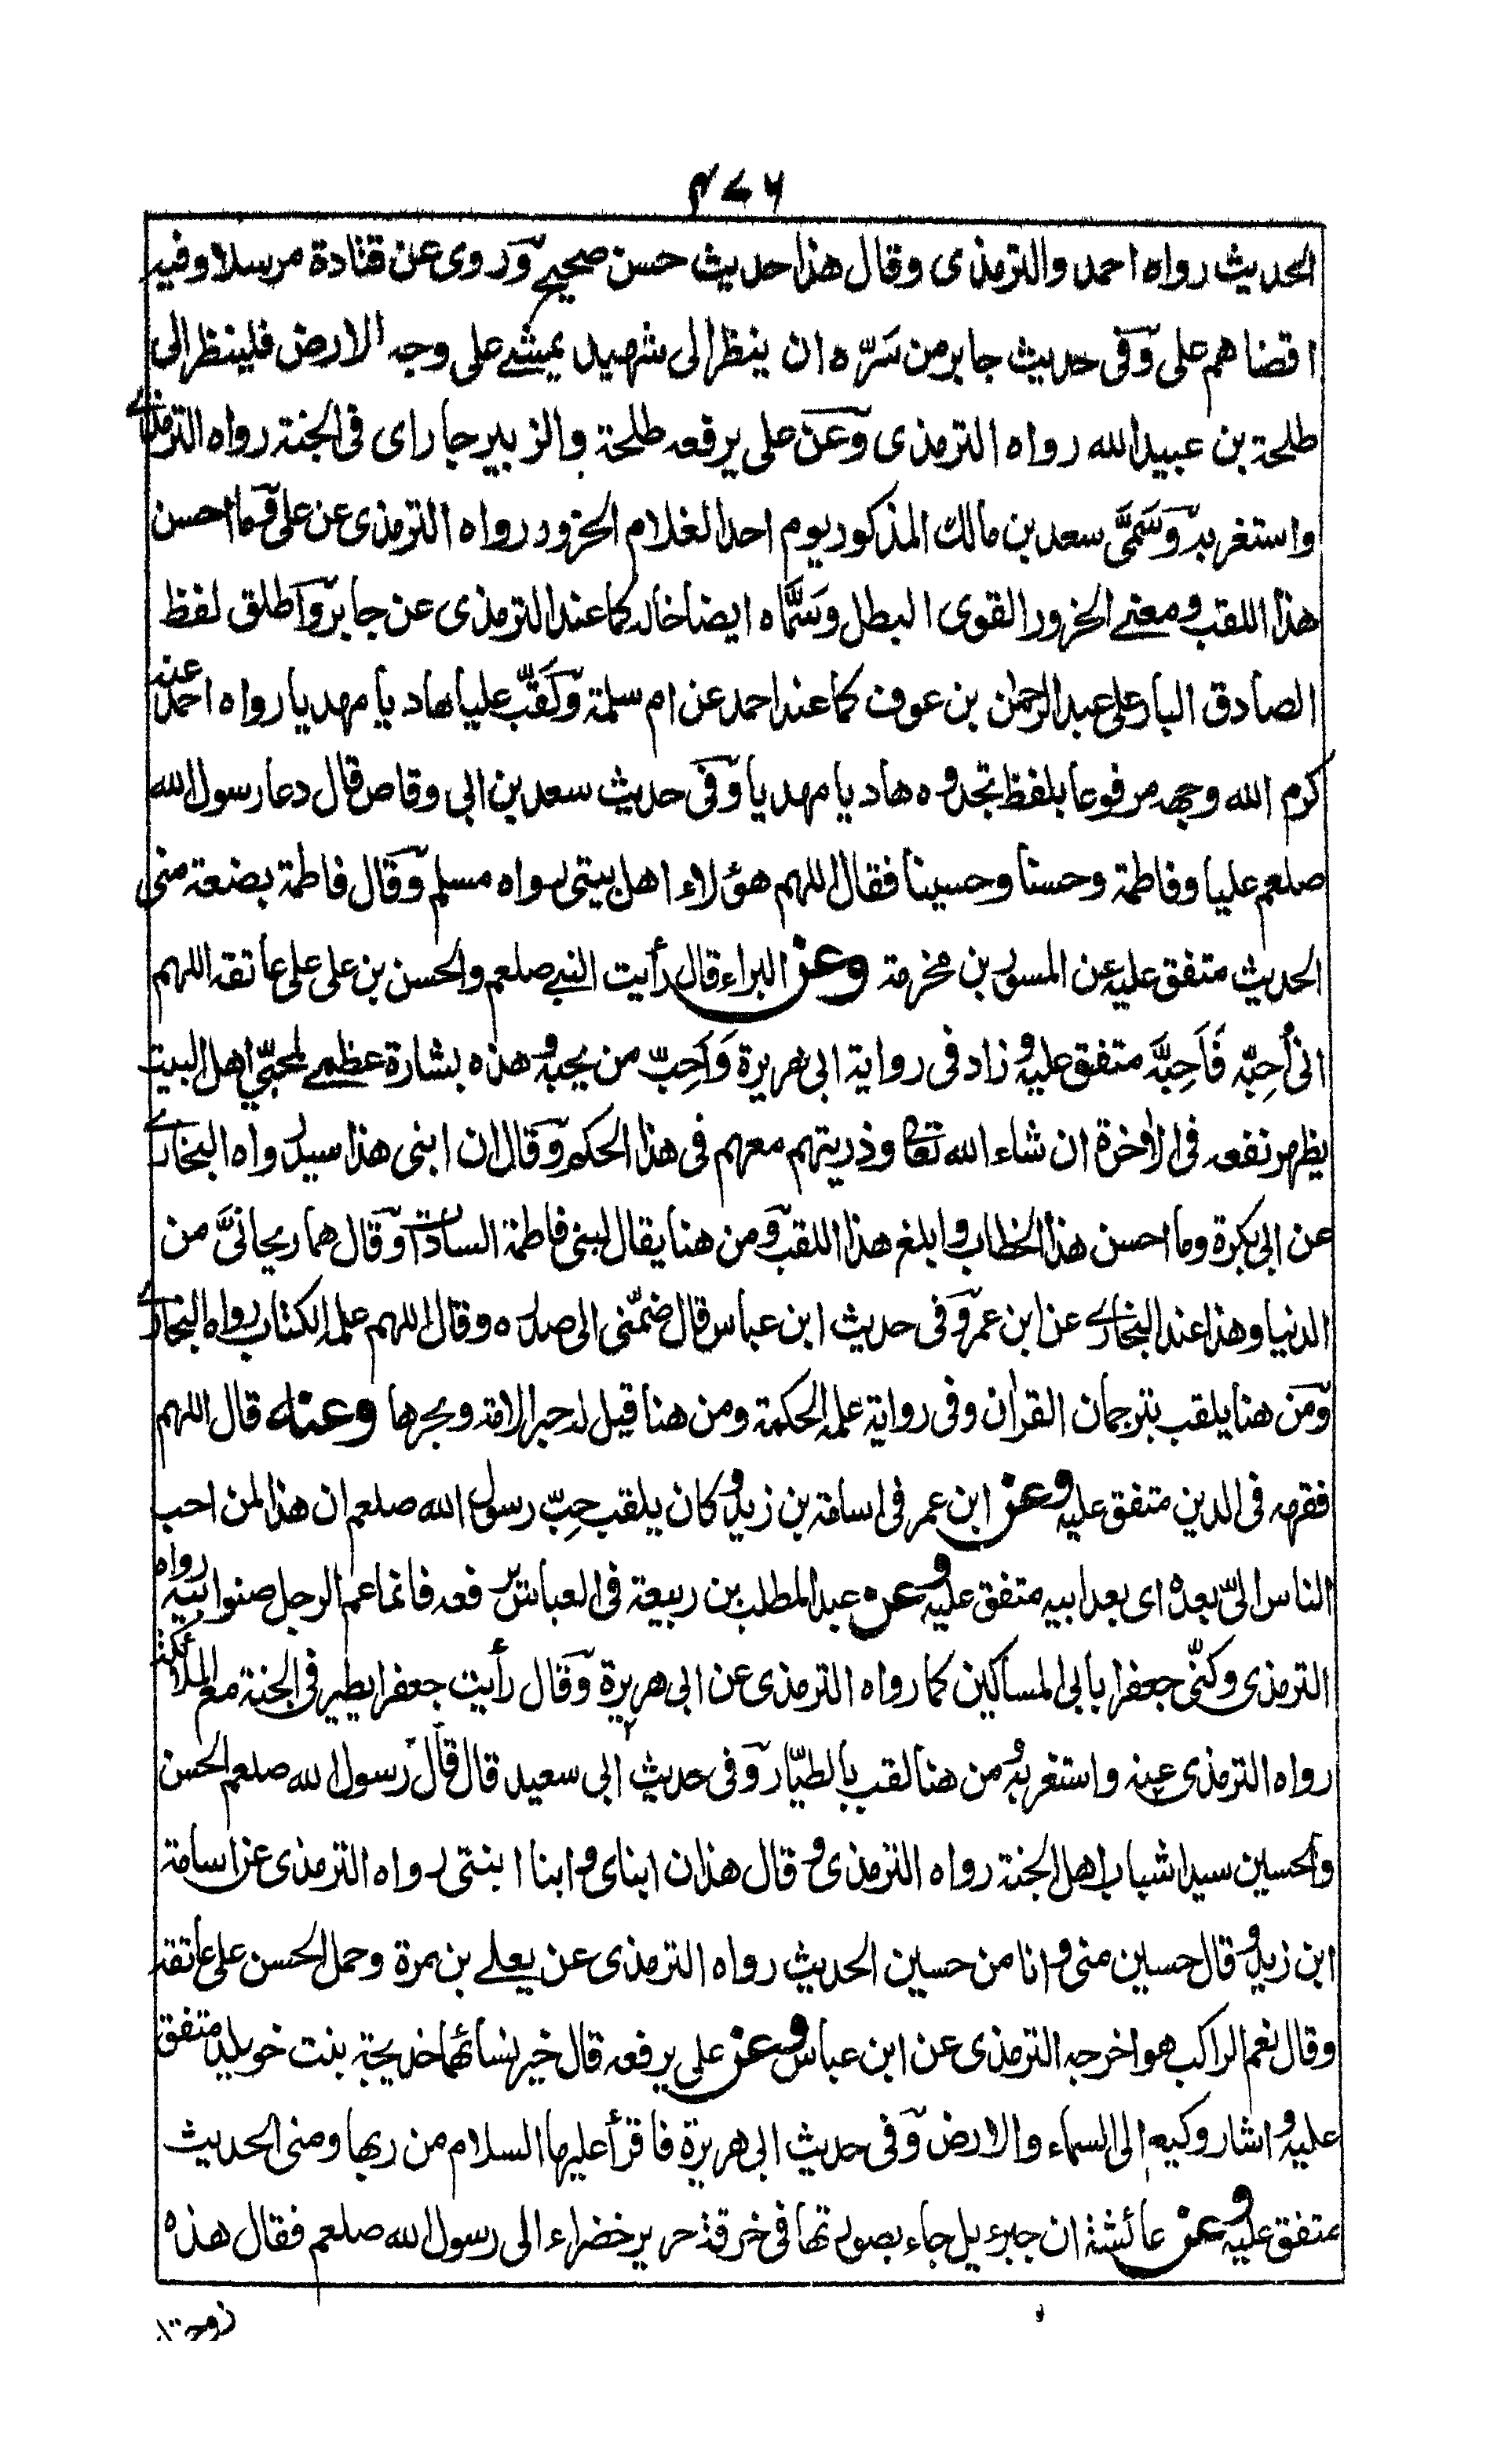 ٤٧٦
الحديث رواه احمد والترمذى وقال هذا حديث حسن صحيح وروى عن قتادة مرسلا وفيه
اقضاهم على وفى حديث جابر من سَرّه ان ينظر الى شهيد يمشے على وجه الارض فلينظر الى
طلحة بن عبيد الله رواه الترمذى وعن على يرفعه طلحة والزبير جاراى فى الجنة رواه الترمذے
واستغربه وسَمَّى سعد بن مالك المذكور يوم احد الغلام الحزور رواه الترمذى عن على وما احسن
هذا اللقب ومعنے الحزور القوى البطل وسَمَّاه ايضا خاله كما عند الترمذى عن جابر واطلق لفظ
الصادق البار على عبد الرحمٰن بن عوف كما عند احمد عن ام سلمة ولَقَّب عليا هاديا مهديا رواه احمد عنه
كرم الله وجهه مرفوعا بلفظ تجدوه هاديا مهديا وفى حديث سعد بن ابى وقاص قال دعا رسول الله
صلعم عليا وفاطمة وحسنا وحسينا فقال اللهم هؤلاء اهل بيتى رواه مسلم وقال فاطمة بضعة منى
الحديث متفق عليه عن المسور بن مخرمة وعن البراء قال رأيت النبے صلعم والحسن بن على على عاتقه اللهم
انى أُحِبّه فَاَحِبَّه متفق عليه وزاد فى رواية ابى هريرة وَاَحِبّ من يحبه وهذه بشارة عظمے لمحبّي اهل البيت
يظهر نفعه فى الاخرة ان شاء الله تعا وذريتهم معهم فى هذا الحكم وقال ان ابنى هذا سيد رواه البخارے
عن ابى بكرة وما احسن هذا الخطاب وابلغ هذا اللقب ومن هنا يقال لبنى فاطمة السادات وقال هما ريحانىَّ من
الدنيا وهذا عند البخارے عن ابن عمر وفى حديث ابن عباس قال ضمّنى الى صدره وقال اللهم علمه الكتاب رواه البخارے
ومن هنا يلقب بترجمان القراٰن وفى رواية علمه الحكمة ومن هنا قيل له حبر الامة وبحرها وعنه قال اللهم
فقهه فى الدين متفق عليه وعن ابن عمر فى اسامة بن زيد وكان يلقب حِبّ رسول الله صلعم ان هذا لمن احب
الناس الىّ بعده اى بعد ابيه متفق عليه وعن عبد المطلب بن ربيعة فى العباس يرفعه فانما عم الرجل صنو ابيه رواه
الترمذى وكنّى جعفرا بابى المساكين كما رواه الترمذى عن ابى هريرة وقال رأيت جعفرا يطير فى الجنة مع الملائكة
رواه الترمذى عنه واستغربه ومن هنا لقب بالطيّار وفى حديث ابى سعيد قال قال رسول الله صلعم الحسن
والحسين سيدا شباب اهل الجنة رواه الترمذى وقال هذان ابناى وابنا ابنتى رواه الترمذى عن اسامة
ابن زيد وقال حسين منى وانا من حسين الحديث رواه الترمذى عن يعلے بن مرة وحمل الحسن على عاتقه
وقال نعم الراكب هو اخرجه الترمذى عن ابن عباس وعن على يرفعه قال خير نسائها خديجة بنت خويلد متفق
عليه واشار وكيع الى السماء والارض وفى حديث ابى هريرة فاقرأ عليها السلام من ربها ومنى الحديث
متفق عليه وعن عائشة ان جبرءيل جاء بصورتها فى خرقة حرير خضراء الى رسول الله صلعم فقال هذه
زوجتك